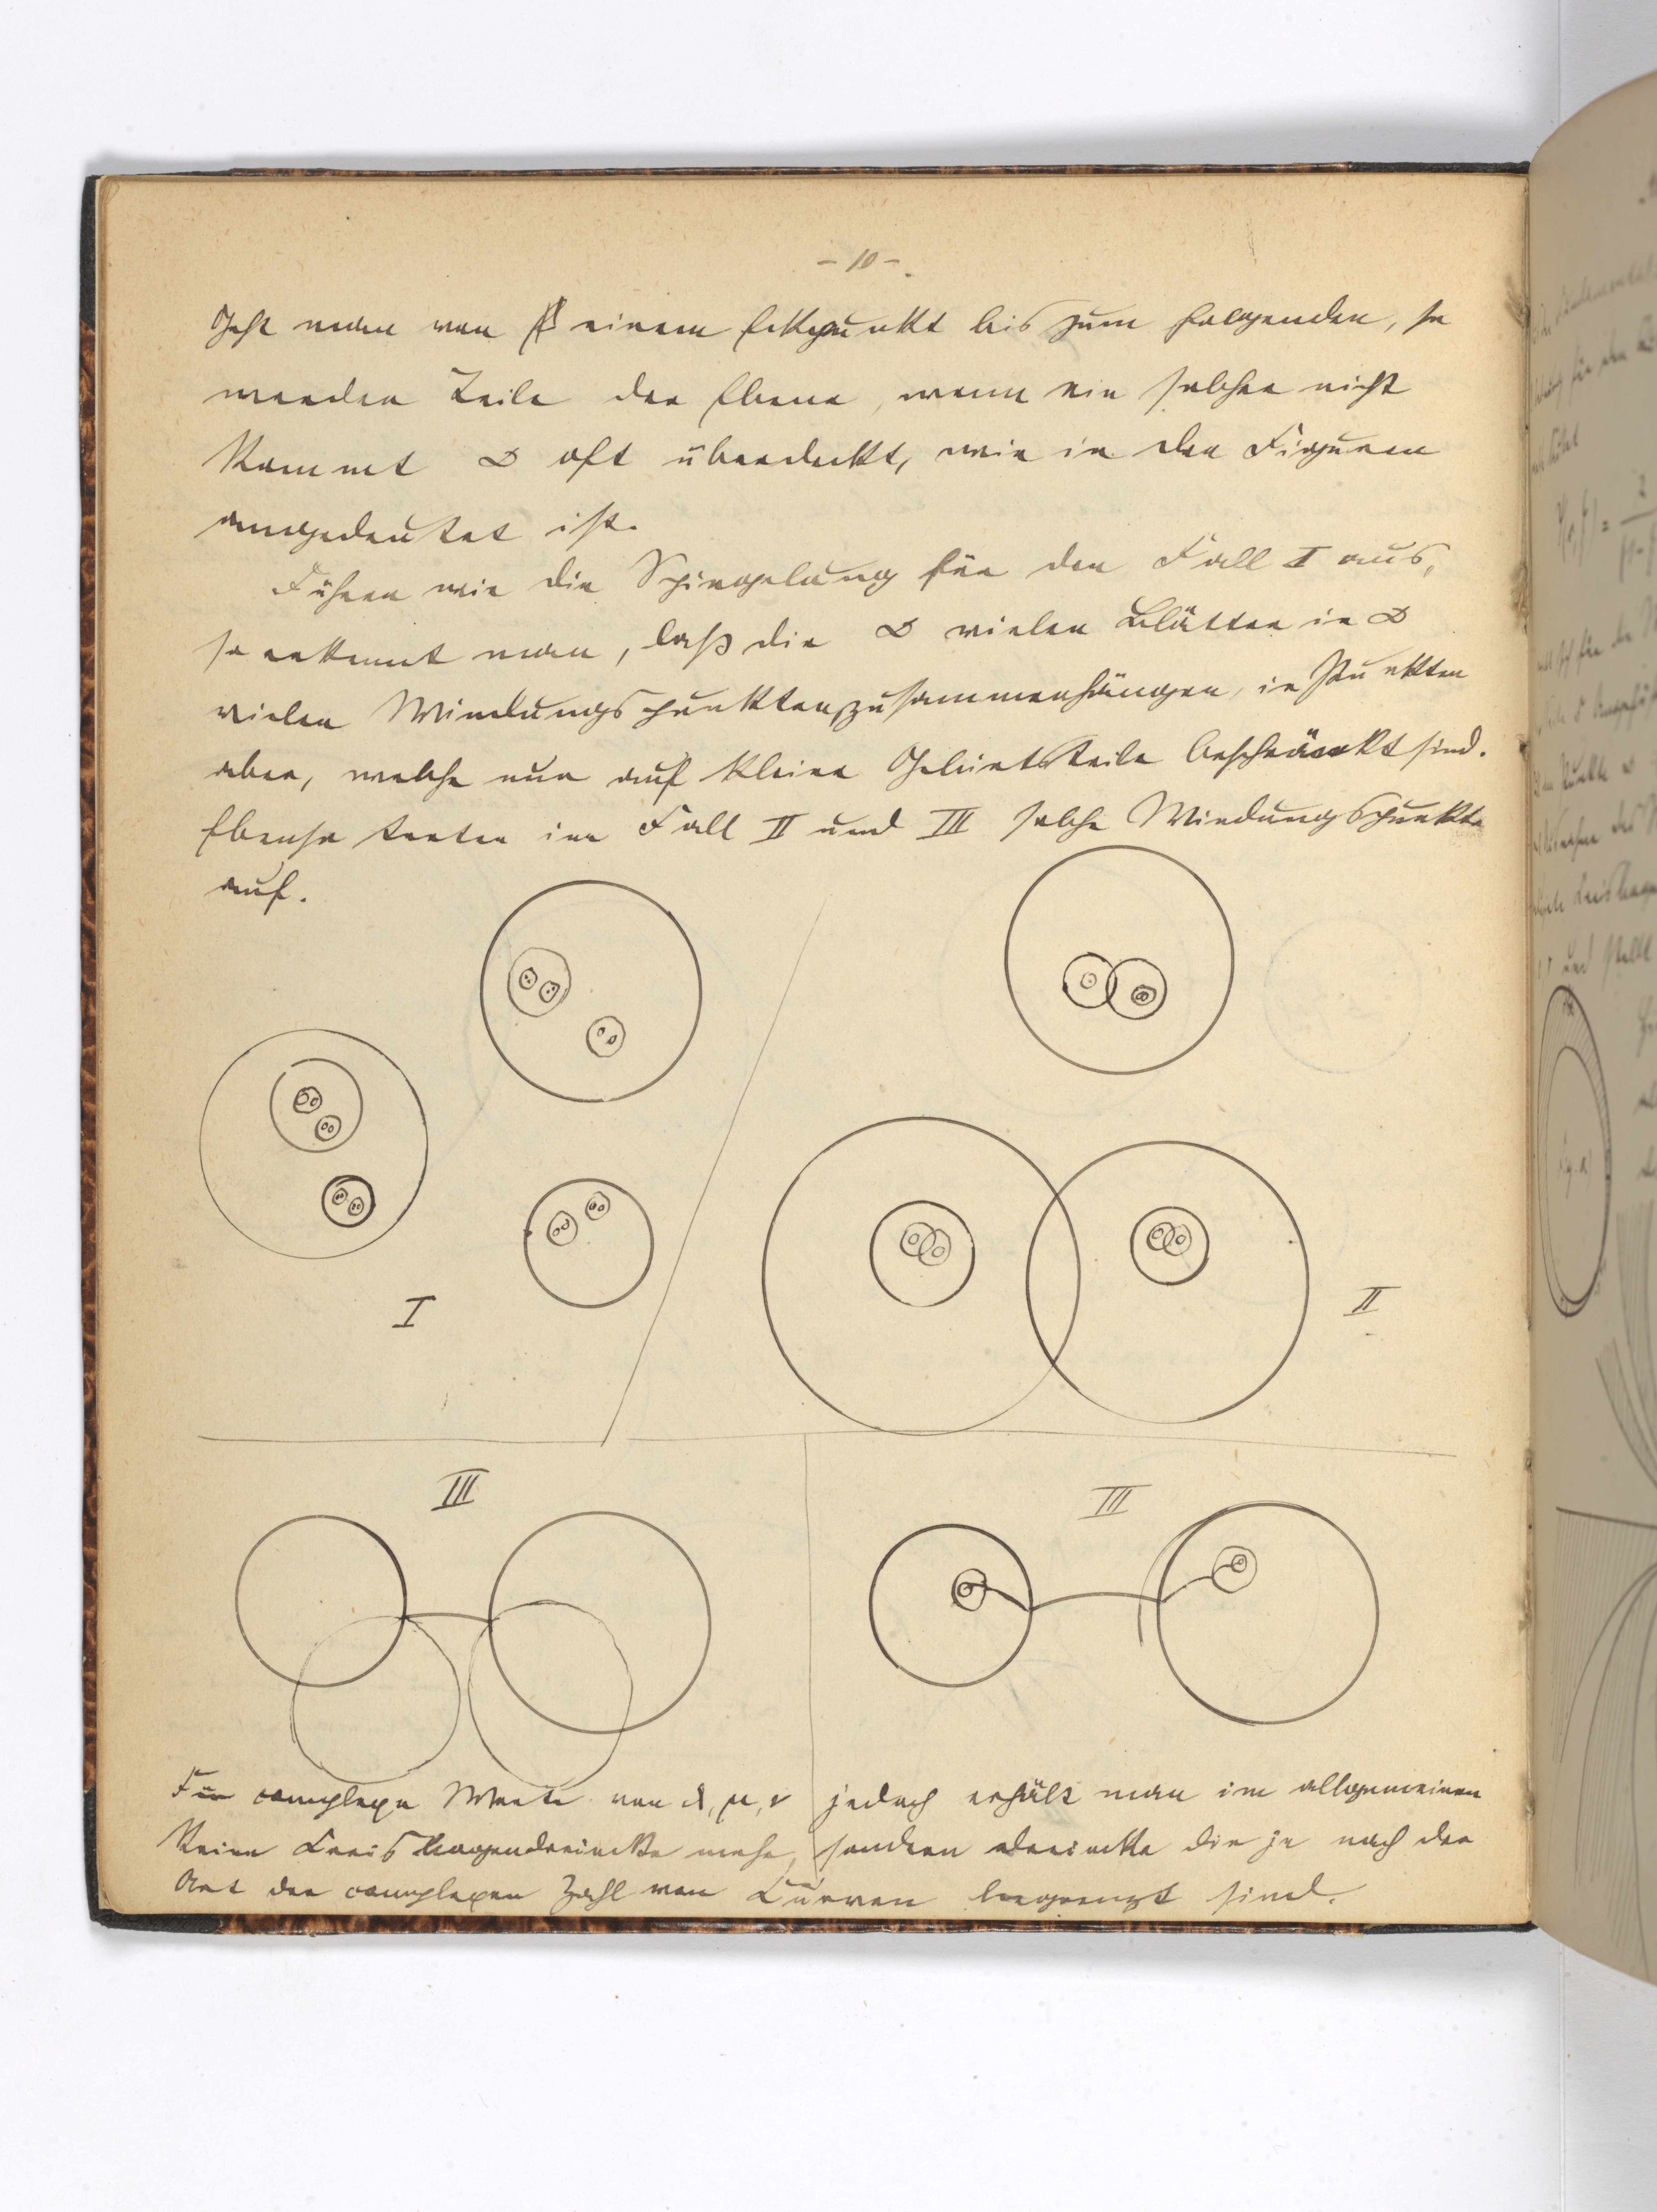 - 10 -.
Geht man von einem Eckpunkt bis zum folgenden, so
werden Teile der Ebene, wenn ein solcher nicht
kommt ∞ oft überdeckt, wie in den Figuren
angedeutet ist.
Führen wir die Spiegelung für den Fall I aus,
so erkennt man, daß die ∞ vielen Blätter in ∞
vielen Windungspunkten, zusammenhängen, in Punkten
aber, welche nur auf kleine Gebietsteile beschränkt sind.
Ebenso treten im Fall II und III solche Windungspunkte
auf.
I
II
III
III
Für complexe Werte von λ, μ, ν jedoch erhält man im allgemeinen
keine Kreisbogendreiecke mehr, sondern Dreiecke die je nach der
Art der complexen Zahl von Curven begrenzt sind.